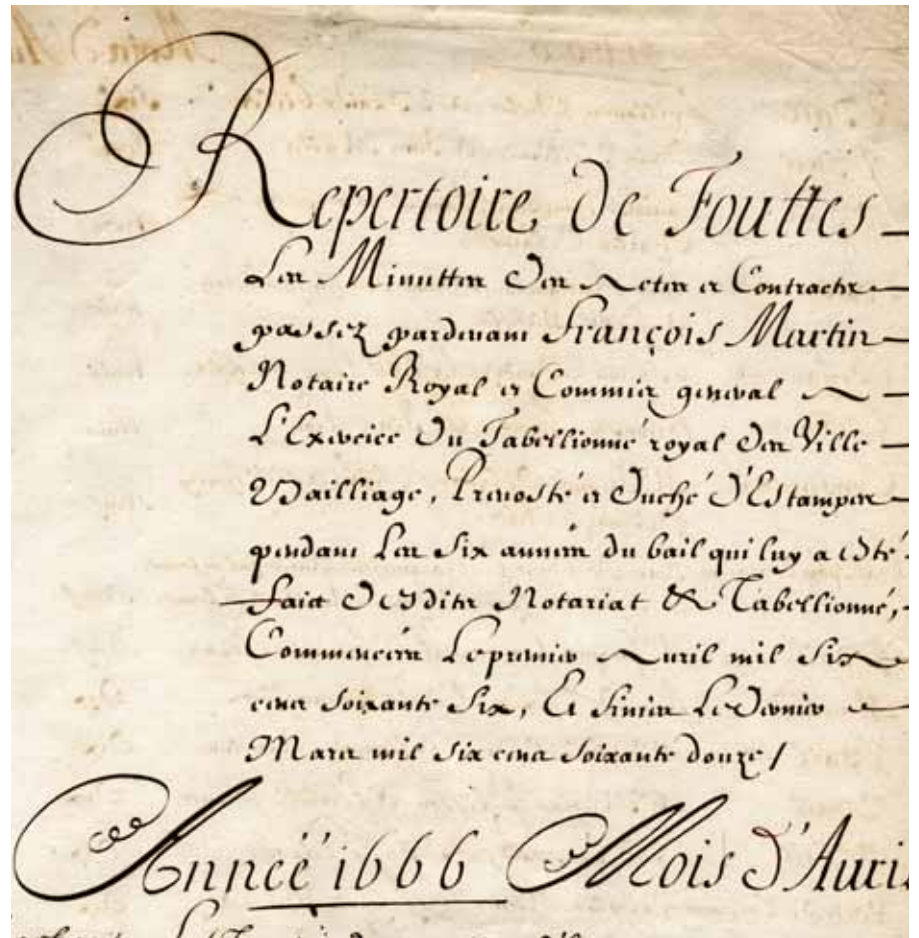 Repertoire de Touttes
Les Minuttes Des Actes et Contracts
passez pardevant François Martin
Notaire Royal et Commis general A
L'Exercice Du Tabellionné royal Des Ville
Bailliage, Prevosté et Duché D'Estampes
pendant Les Six années du bail qui luy a esté
faict Desdits Notariat & Tabellionné,
Commencées Le premier Auril mil Six
cens soixante Six, Et finies Le Dernier
Mars mil six cens soixante douze /
Anneé 1666 Mois d'Auril